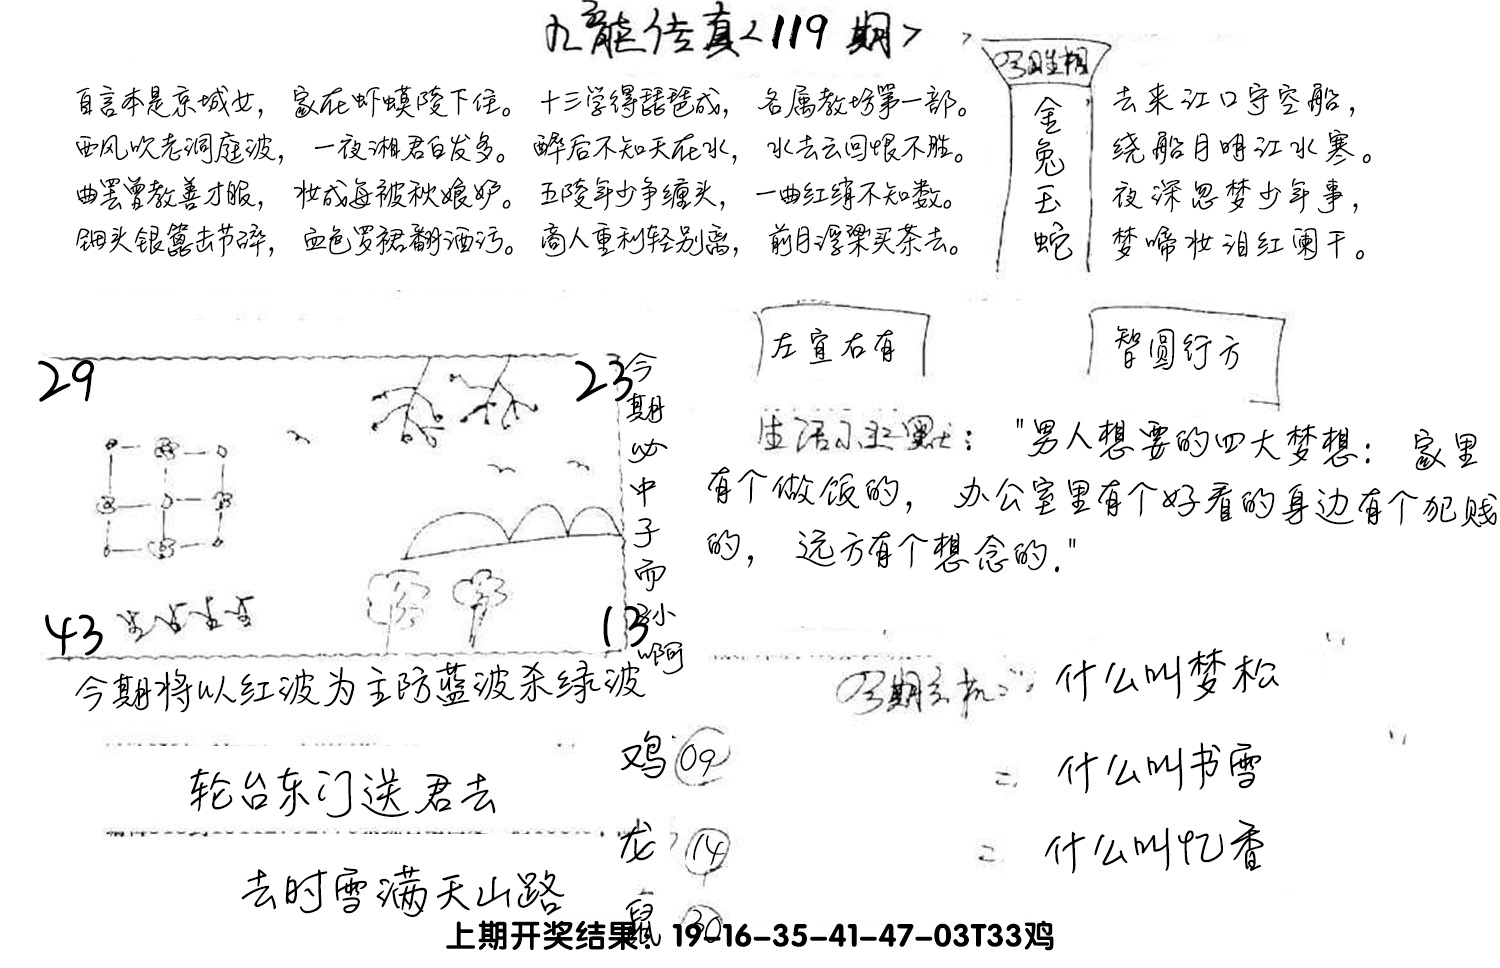 九龙传真<119期>
自言本是京城女，家在虾蟆陵下住。十三学得琵琶成，名属教坊第一部。
西风吹老洞庭波，一夜湘君白发多。醉后不知天在水，水去云回恨不胜。
曲罢曾教善才服，妆成每被秋娘妒。五陵年少争缠头，一曲红绡不知数。
钿头银篦击节碎，血色罗裙翻酒污。商人重利轻别离，前月浮梁买茶去。
金兔玉蛇
去来江口守空船，
绕船月明江水寒。
夜深忽梦少年事，
梦啼妆泪红阑干。
29
23
43
13
今期必中子而孙啊
今期将以红波为主防蓝波杀绿波
左宜右有
智圆行方
生活幽默："男人想要的四大梦想：家里
有个做饭的，办公室里有个好看的身边有个犯贱
的，远方有个想念的."
今期玄机: 什么叫梦松
= 什么叫书雪
= 什么叫忆香
轮台东门送君去
去时雪满天山路
鸡 09
龙 14
鼠 30
上期开奖结果：19-16-35-41-47-03T33鸡